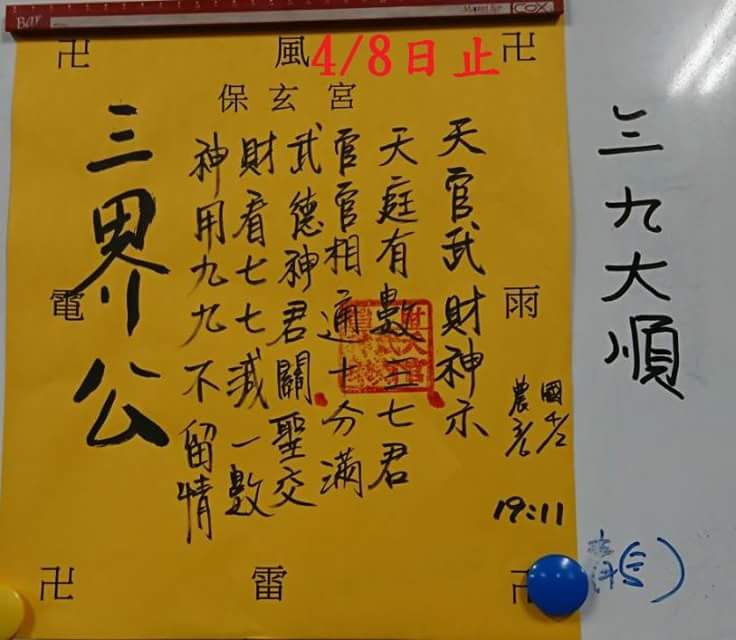 BAR
COX
卍 風 卍
4/8日止
保玄宮
天官武財神示
天庭有數王七君
官官相通十分滿
武德神君關聖交
財看七七減一數
神用九九不留情
三界公
電
雨
國4/2
農3/6
19:11
卍 雷 卍
三九大順